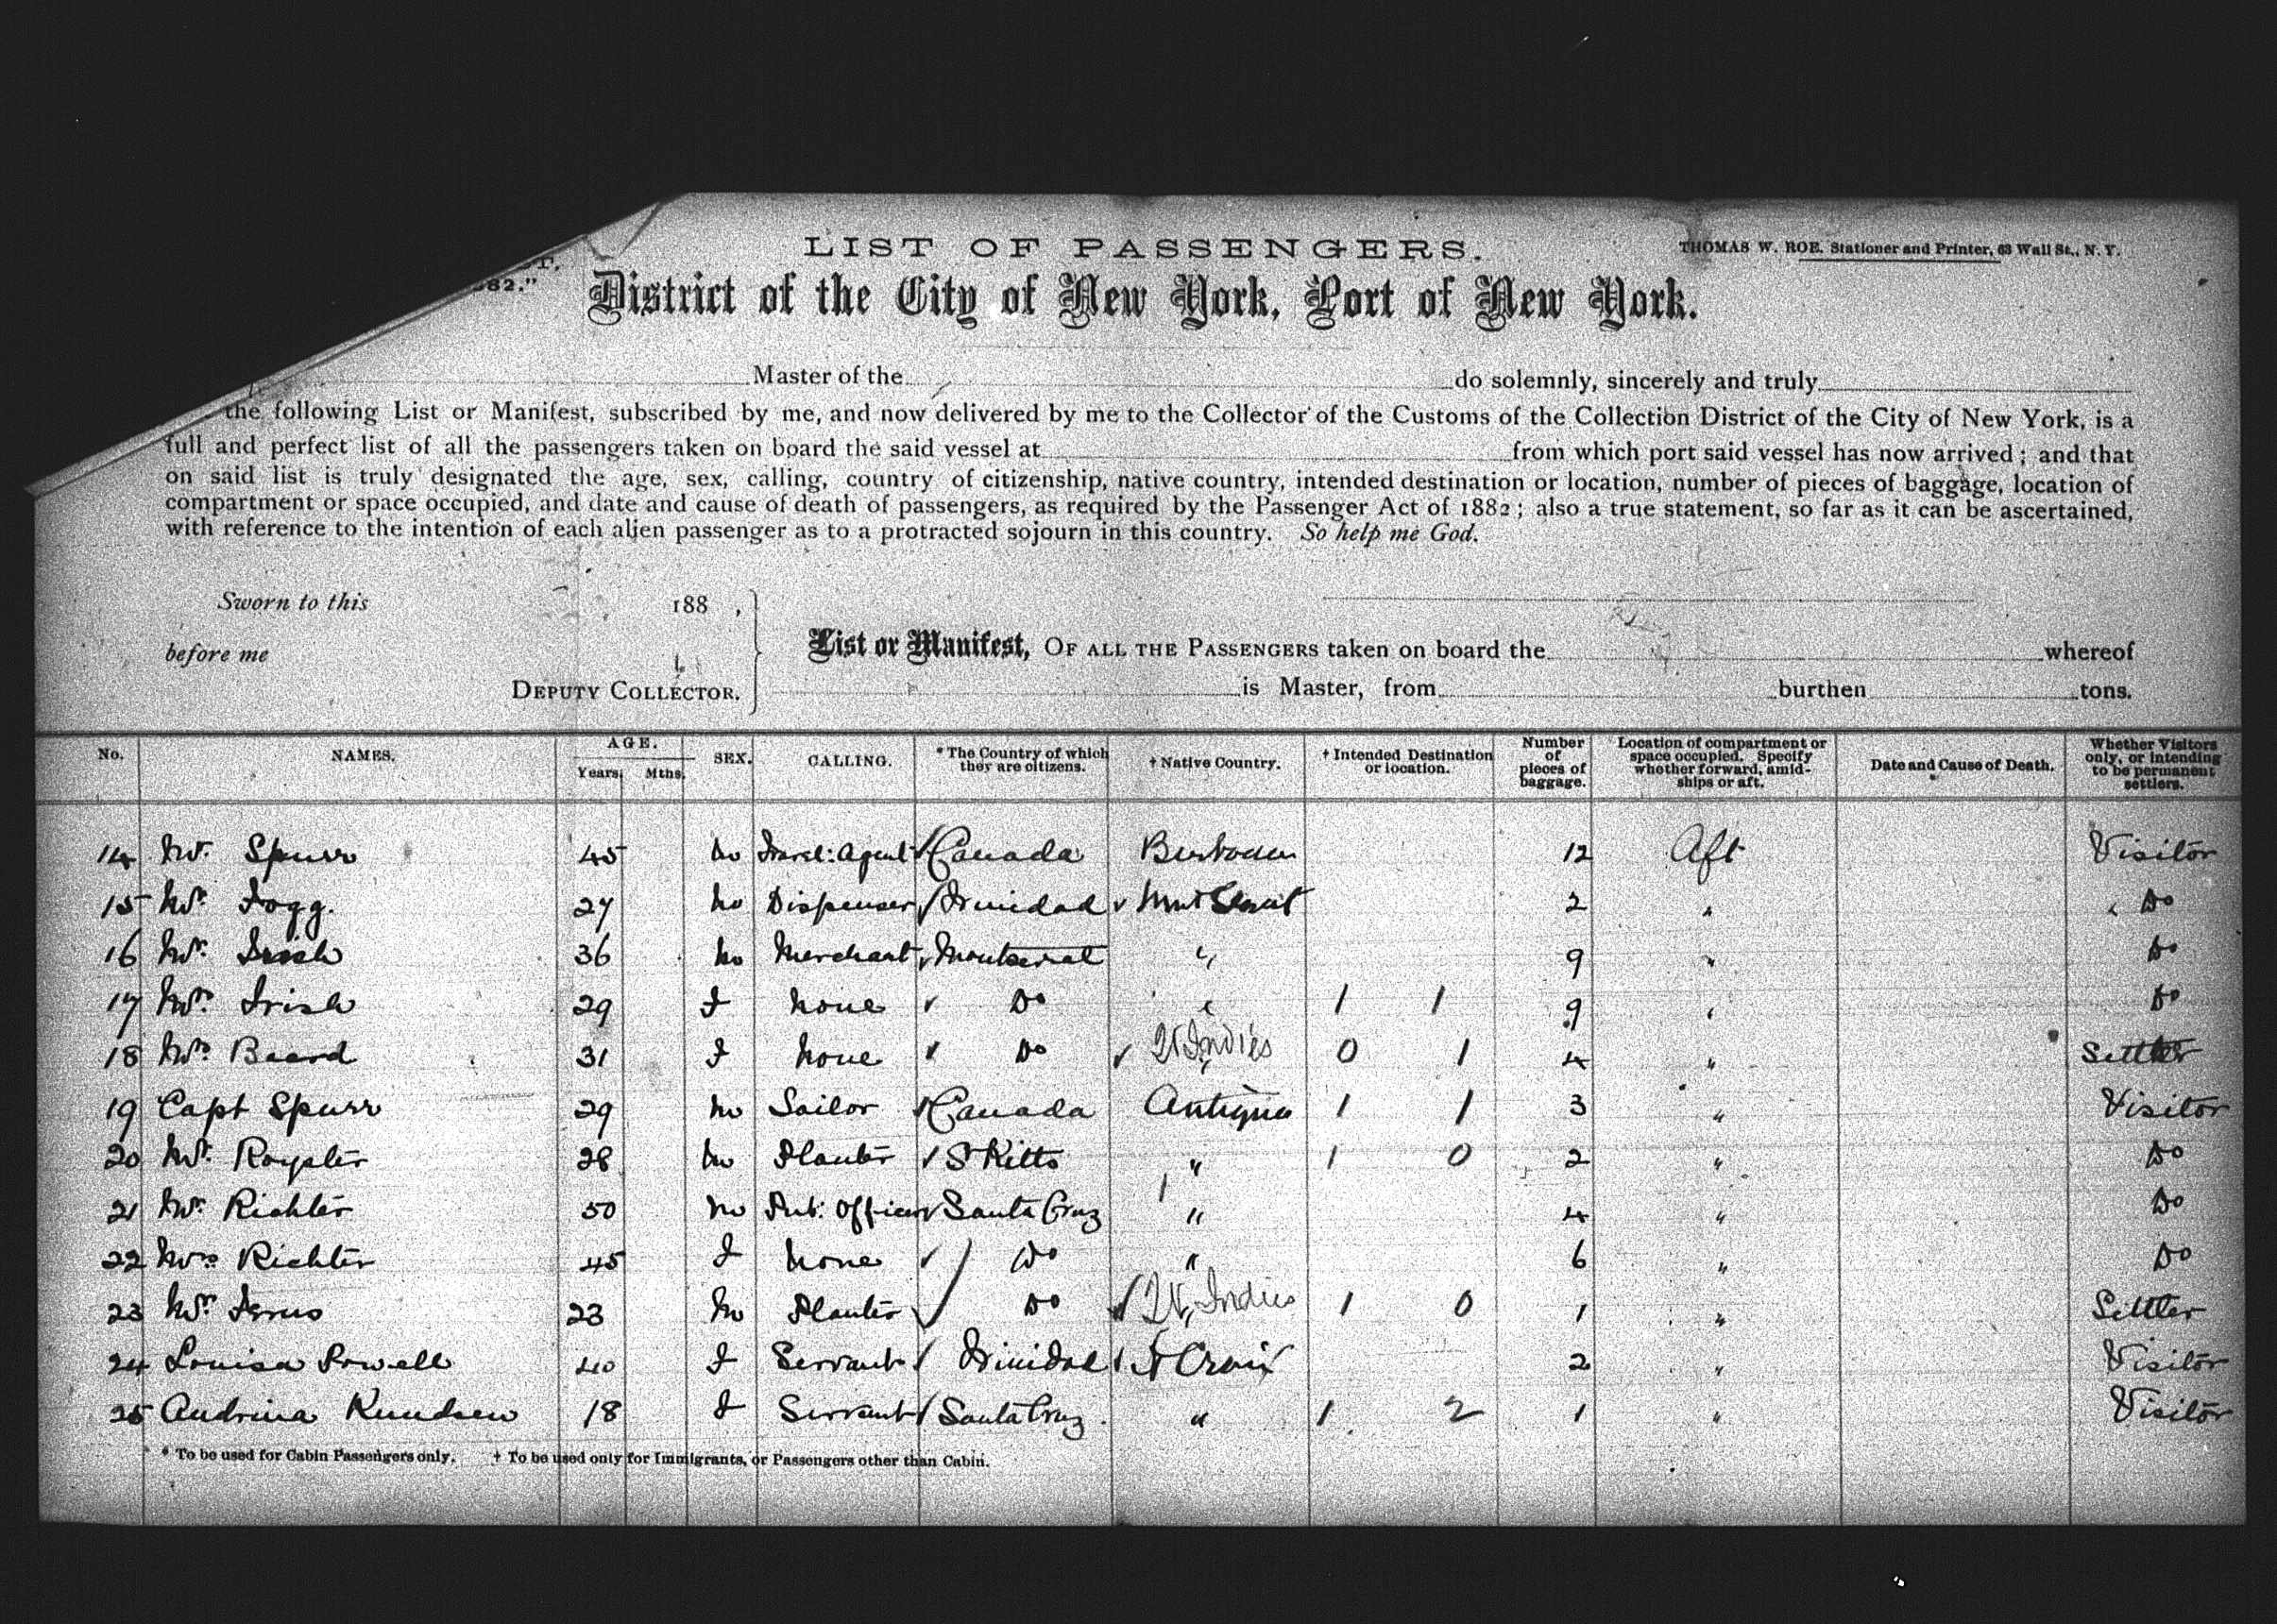 LIST OF PASSENGERS.
THOMAS W. ROE. Stationer and Printer, 63 Wall St., N. Y.
82."
District of the City of New York, Port of New York.
Master of the do solemnly, sincerely and truly
the following List or Manifest, subscribed by me, and now delivered by me to the Collector of the Customs of the Collection District of the City of New York, is a
full and perfect list of all the passengers taken on board the said vessel at from which port said vessel has now arrived; and that
on said list is truly designated the age, sex, calling, country of citizenship, native country, intended destination or location, number of pieces of baggage, location of
compartment or space occupied, and date and cause of death of passengers, as required by the Passenger Act of 1882; also a true statement, so far as it can be ascertained,
with reference to the intention of each alien passenger as to a protracted sojourn in this country. So help me God.
Sworn to this 188 ,
before me
List or Manifest, OF ALL THE PASSENGERS taken on board the whereof
DEPUTY COLLECTOR.
is Master, from burthen tons.
No. NAMES. AGE. Years. Mths. SEX. CALLING. * The Country of which they are citizens. † Native Country. † Intended Destination or location. Number of pieces of baggage. Location of compartment or space occupied. Specify whether forward, amidships or aft. Date and Cause of Death. Whether Visitors only, or intending to be permanent settlers.
14 Mr. Spurr 45 M Travel: Agent Canada 12 Aft Visitor
15 Mr. Fogg. 27 M Dispenser Trinidad 2 " Do
16 Mr. Irish 36 M Merchant Montserrat " 9 " Do
17 Mrs Irish 29 F None Do " 1 1 9 " Do
18 Mrs Beard 31 F None Do W Indies 0 1 4 " Settler
19 Capt Spurr 29 M Sailor Canada Antigua 1 1 3 " Visitor
20 Mr. Royster 28 M Planter St Kitts " 1 0 2 " Do
21 Mr. Richter 50 M Pub: Officer Santa Cruz " 4 " Do
22 Mrs Richter 45 F None Do " 6 " Do
23 Mr. 23 M Planter Do W. Indies 1 0 1 " Settler
24 Louisa Powell 40 F Servant Trinidad St Croix 2 " Visitor
25 Andrina Knudsen 18 F Servant Santa Cruz " 1 2 1 " Visitor
* To be used for Cabin Passengers only. † To be used only for Immigrants, or Passengers other than Cabin.